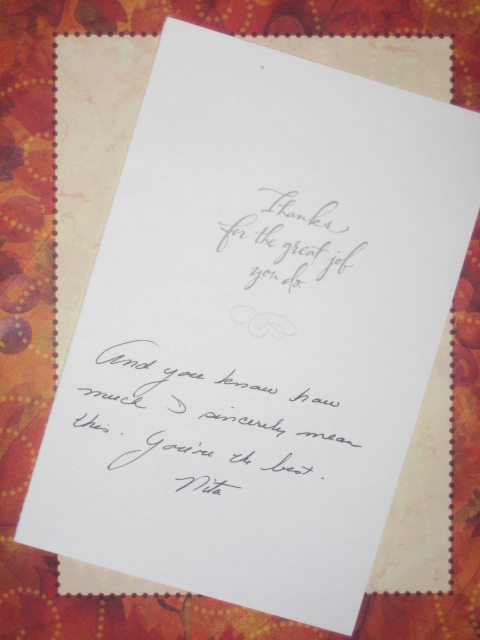 Thanks
for the great job
you do.
And you know how
much I sincerely mean
this. You're the best.
Nita